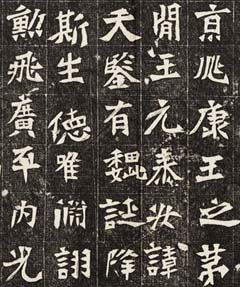 京兆康王之第
閒王元泰安諱
天鑒有魏誕降
斯生德唯淵詡
勲飛廣平内光